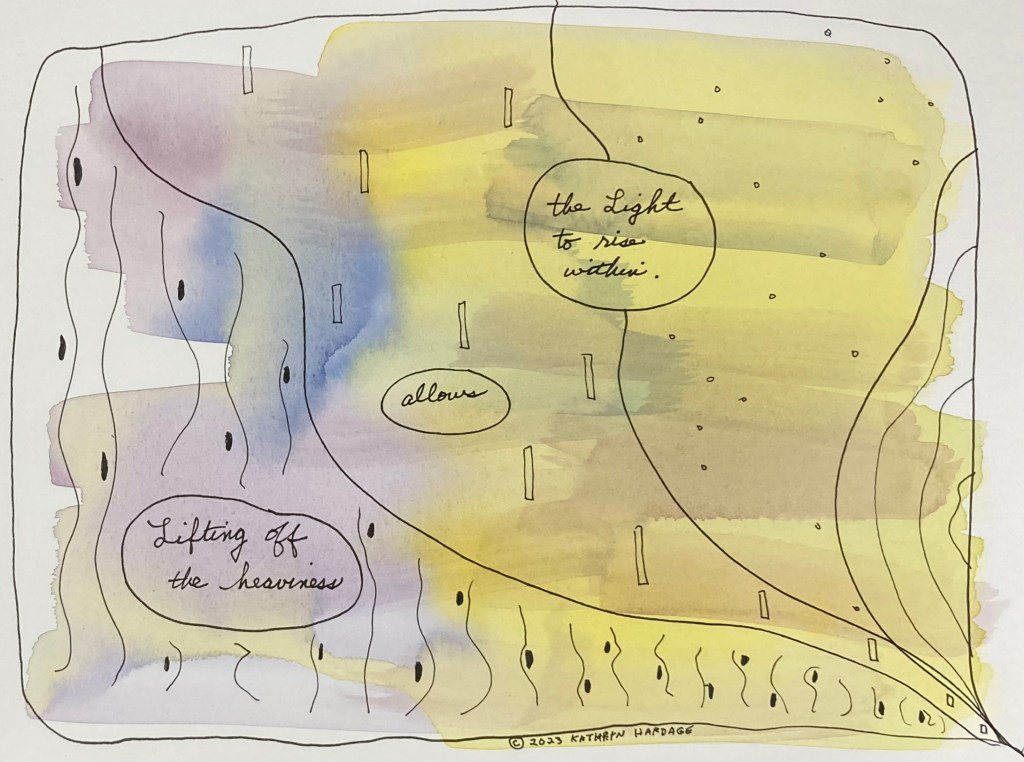 Lifting off
the heaviness
allows
the Light
to rise
within.
© 2023 KATHRYN HARDAGE